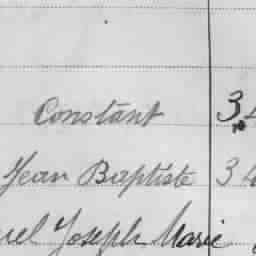 Constant 3
Jean Baptiste 3
Joseph Marie